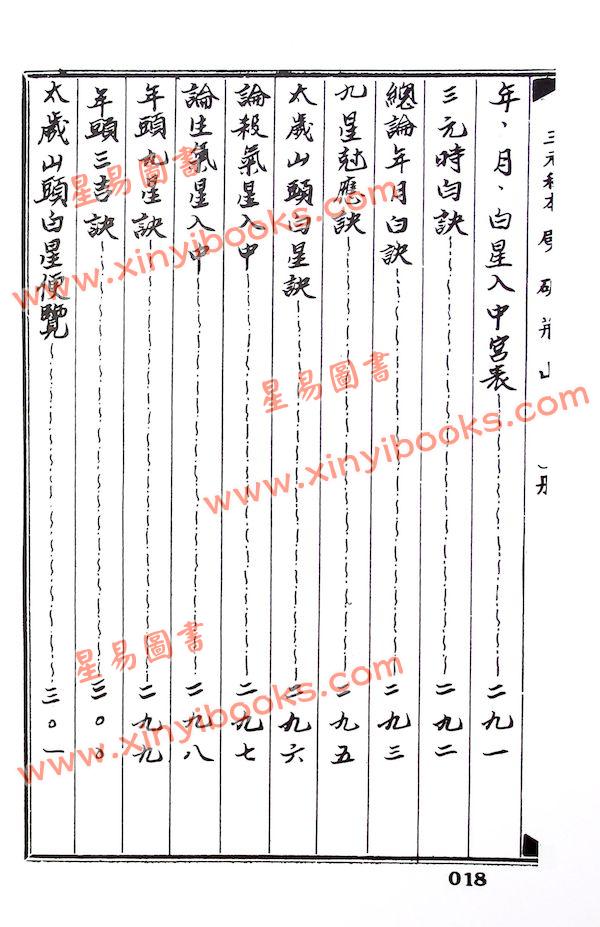 年、月、白星入中宮表 二九一
三元時白訣 二九二
總論年月白訣 二九三
九星尅應訣 二九五
太歲山頭白星訣 二九六
論殺氣星入中 二九七
論生氣星入中 二九八
年頭九星訣 二九九
年頭三吉訣 三〇〇
太歲山頭白星便覽 三〇一
018
星易圖書
www.xinyibooks.com
星易圖書
www.xinyibooks.com
星易圖書
www.xinyibooks.com